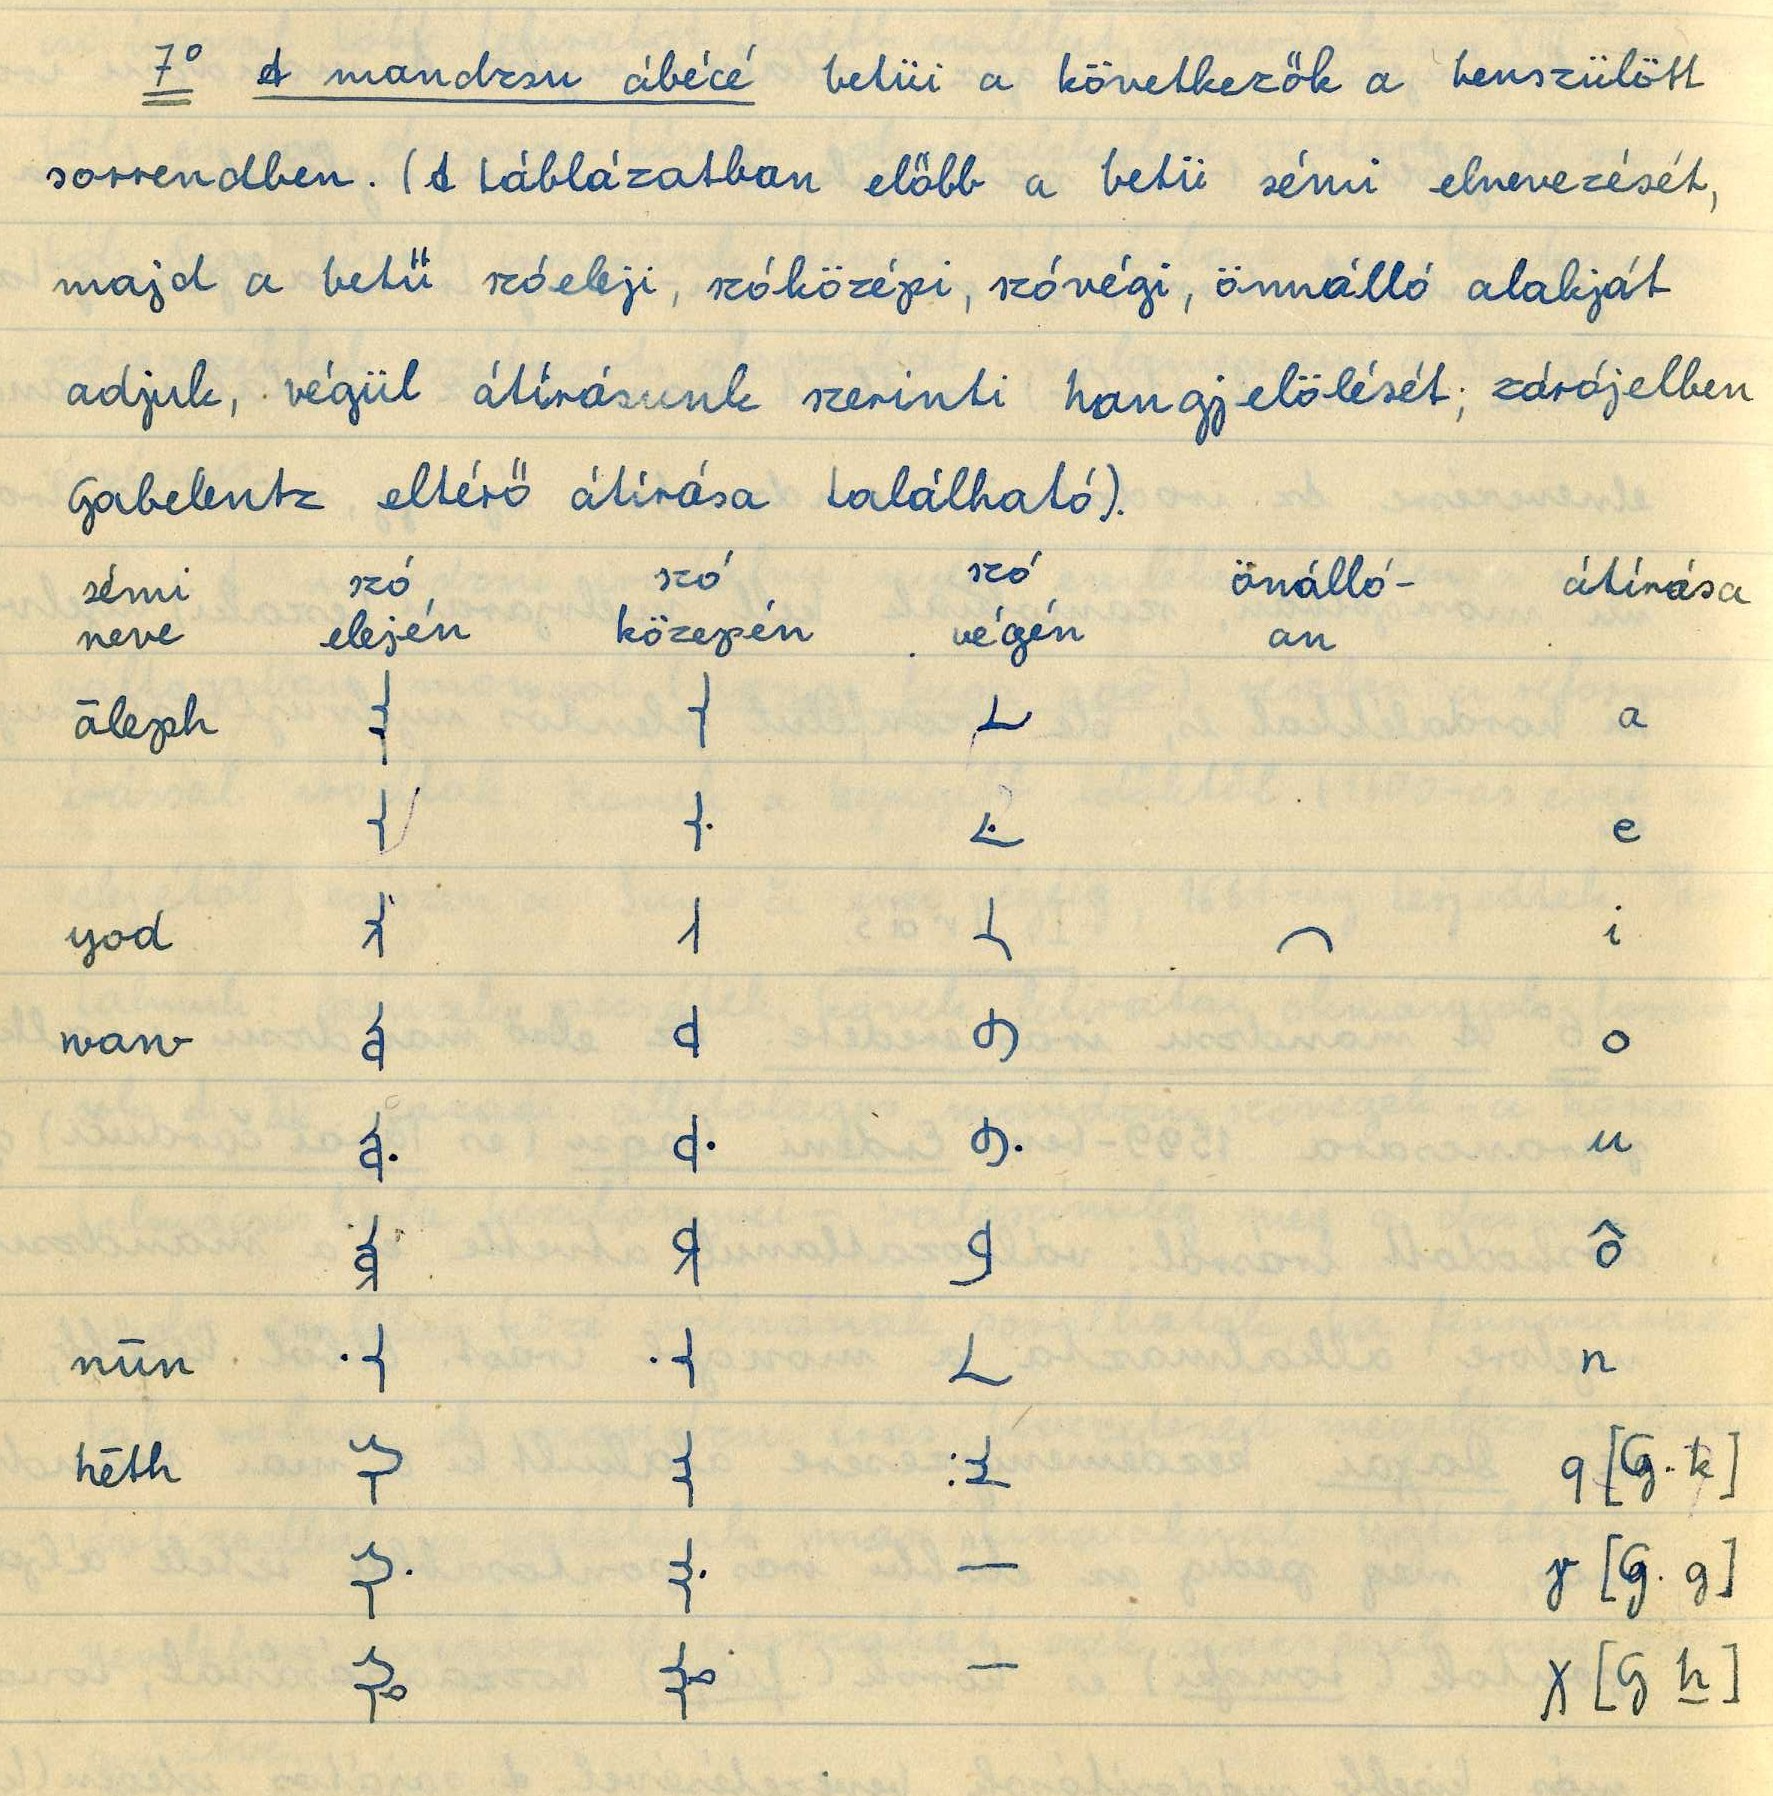 7° A mandzsu ábécé betüi a következők a benszülött
sorrendben. (A táblázatban előbb a betü sémi elnevezését,
majd a betű szóeleji, szóközépi, szóvégi, önnálló alakját
adjuk, végül átírásunk szerinti hangjelölését; zárójelben
Gabelentz eltérő átírása található).
sémi szó szó szó önálló- átírása
neve elején közepén végén an
āleph ᠠ a
e
yod i
waw o
u
ô
nūn n
hēth q [G. k]
— γ [G. g]
— χ [G h]